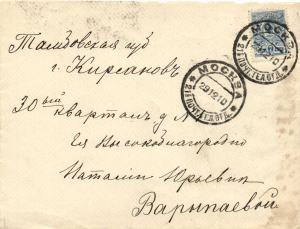 Тамбовская губ
г. Кирсановъ
30ый кварталъ д. №
Ея Высокоблагородію
Наталіи Юрьевнѣ
Варыпаевой
МОСКВА
29 12 10
МОСКВА